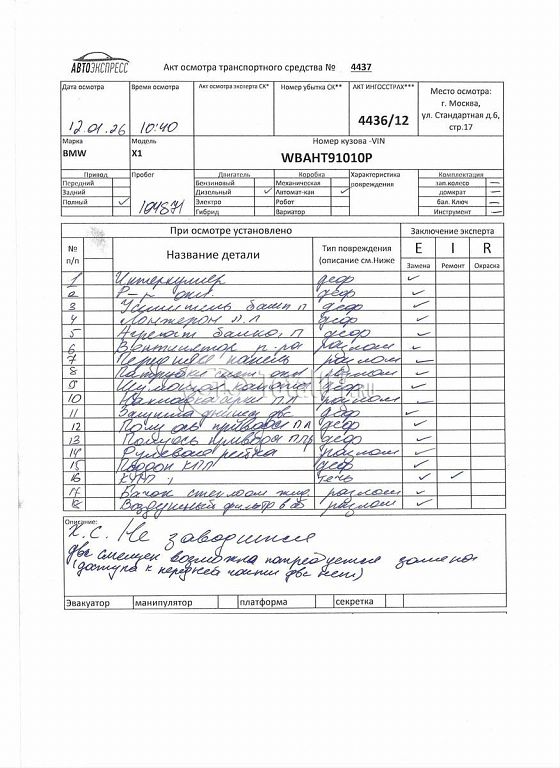 АВТОЭКСПРЕСС
Акт осмотра транспортного средства № 4437
Дата осмотра
Время осмотра
Акт осмотра эксперта СК*
Номер убытка СК**
АКТ ИНГОССТРАХ***
Место осмотра:
г. Москва,
ул. Стандартная д.6,
стр.17
12.01.26
10:40
4436/12
Марка
Модель
Номер кузова -VIN
BMW
X1
WBAHT91010P
Привод
Пробег
Двигатель
Коробка
Характеристика
повреждения
Комплектация
Передний
Бензиновый
Механическая
зап.колесо —
Задний
Дизельный ✓
Автомат-кая ✓
домкрат —
Полный ✓
Электро
Робот
бал. Ключ —
Гибрид
Вариатор
Инструмент —
При осмотре установлено
Заключение эксперта
№
п/п
Название детали
Тип повреждения
(описание см.Ниже
E I R
Замена Ремонт Окраска
1 Интеркулер деф ✓
2 деф ✓
3 Усилитель бамп п деф ✓
4 Лонжерон п.л деф ✓
5 Агрегат балка, п деф ✓
6 Вентилятор п. ра разлом ✓
7 Передняя панель разлом ✓
8 Патрубки разлом ✓
9 деф ✓
10 разлом ✓
11 Защита днища двс деф ✓
12 Полу ось привода п л деф ✓
13 Полуось привода п пр деф ✓
14 Рулевая рейка разлом ✓
15 Поддон КПП деф ✓
16 течь ✓ ✓
17 Бачок стеклоом жид разлом ✓
18 Воздушный фильтр в сб разлом ✓
Описание:
Х.С. Не заводится
двс смещен возможна потребуется замена
(доступа к передней части двс нет)
Эвакуатор
манипулятор
платформа
секретка